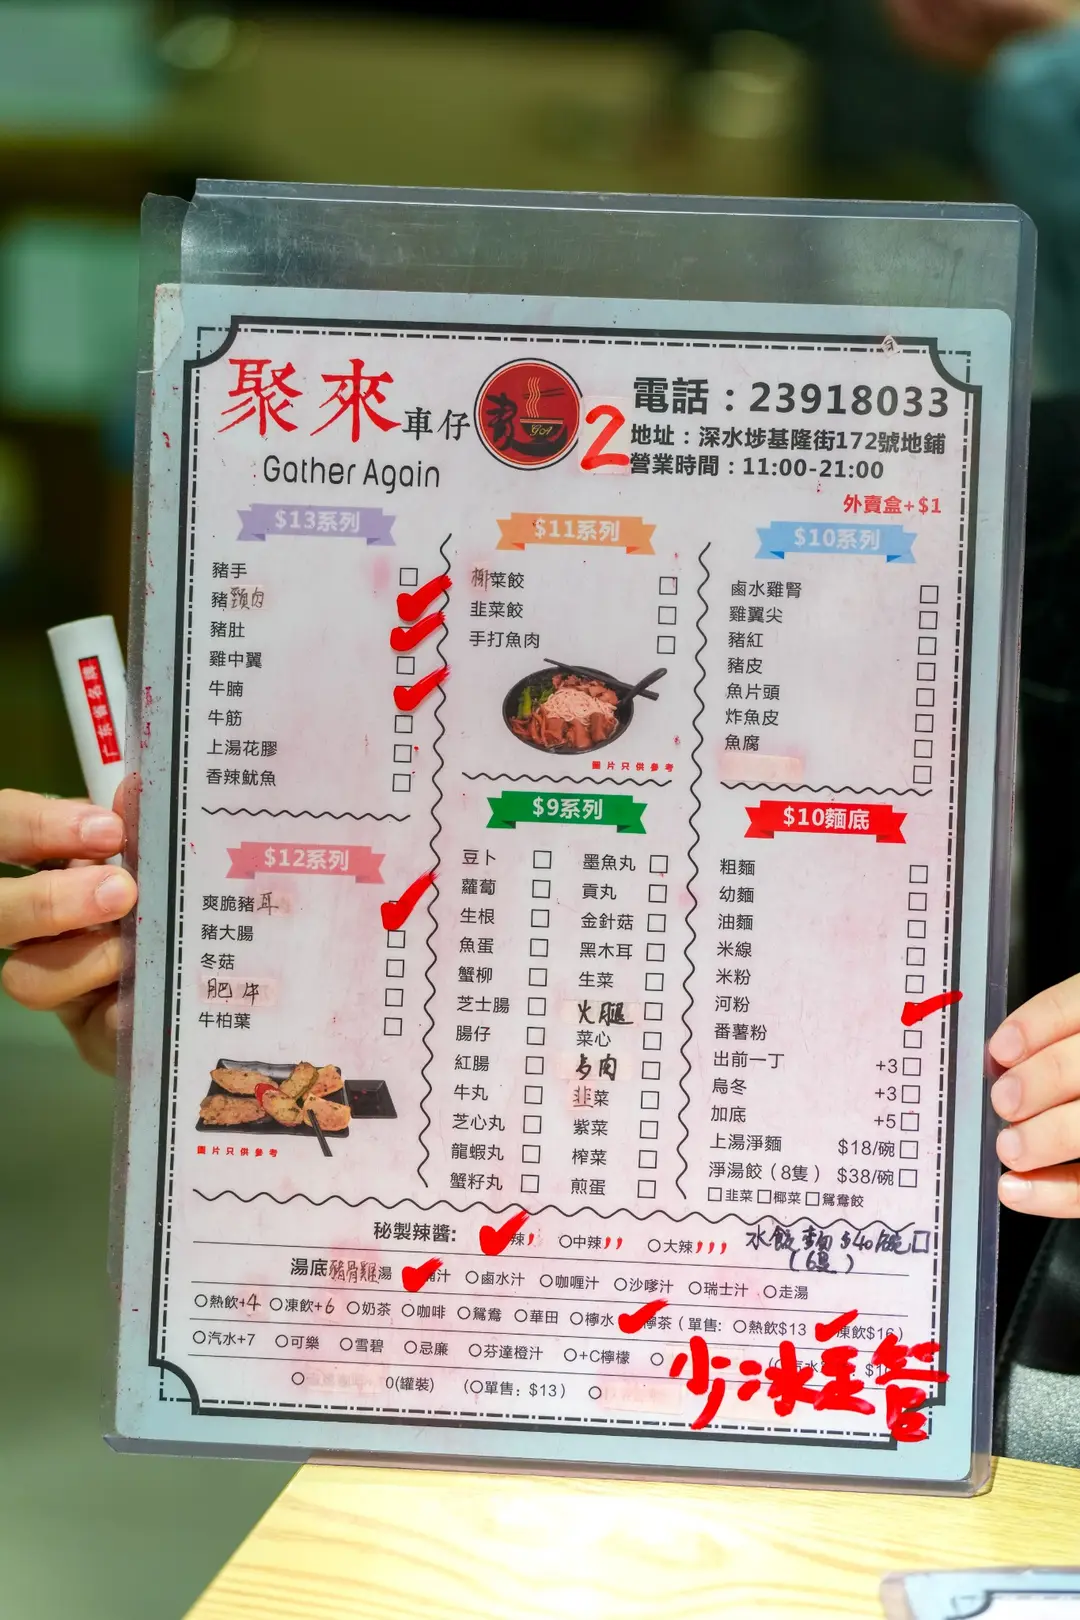 聚來車仔
Gather Again
2
電話：23918033
地址：深水埗基隆街172號地鋪
營業時間：11:00-21:00
外賣盒+$1
$13系列
豬手
豬頸肉
豬肚
雞中翼
牛腩
牛筋
上湯花膠
香辣魷魚
$12系列
爽脆豬耳
豬大腸
冬菇
肥牛
牛柏葉
圖片只供參考
$11系列
椰菜餃
韭菜餃
手打魚肉
圖片只供參考
$9系列
豆卜
蘿蔔
生根
魚蛋
蟹柳
芝士腸
腸仔
紅腸
牛丸
芝心丸
龍蝦丸
蟹籽丸
墨魚丸
貢丸
金針菇
黑木耳
生菜
火腿
菜心
韭菜
紫菜
榨菜
煎蛋
$10系列
鹵水雞腎
雞翼尖
豬紅
豬皮
魚片頭
炸魚皮
魚腐
$10麵底
粗麵
幼麵
油麵
米線
米粉
河粉
番薯粉
出前一丁 +3
烏冬 +3
加底 +5
上湯淨麵 $18/碗
淨湯餃（8隻） $38/碗
韭菜 椰菜 鴛鴦餃
秘製辣醬: 辣 中辣 大辣
水餃麵 $40/碗
湯底 豬骨雞湯 腩汁 鹵水汁 咖喱汁 沙嗲汁 瑞士汁 走湯
熱飲+4 凍飲+6 奶茶 咖啡 鴛鴦 華田 檸水 檸茶（單售: 熱飲$13 凍飲$16）
汽水+7 可樂 雪碧 忌廉 芬達橙汁 +C檸檬
0(罐裝) （單售：$13）
少冰
广东省名牌